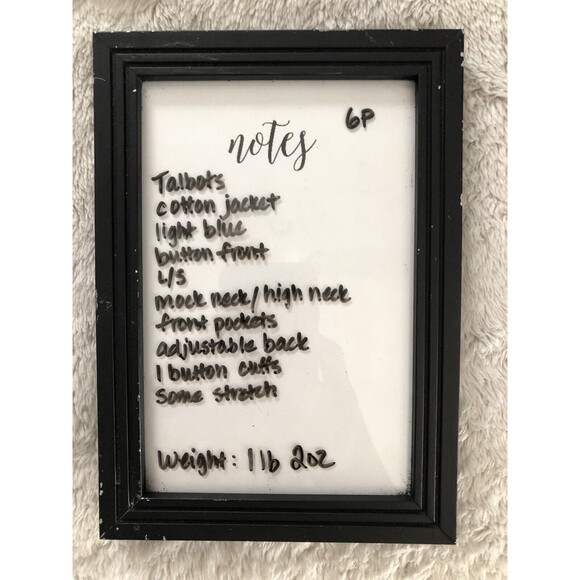 6P
notes
Talbots
cotton jacket
light blue
button front
L/S
mock neck/high neck
front pockets
adjustable back
1 button cuffs
some stretch
Weight: 1 lb 2oz